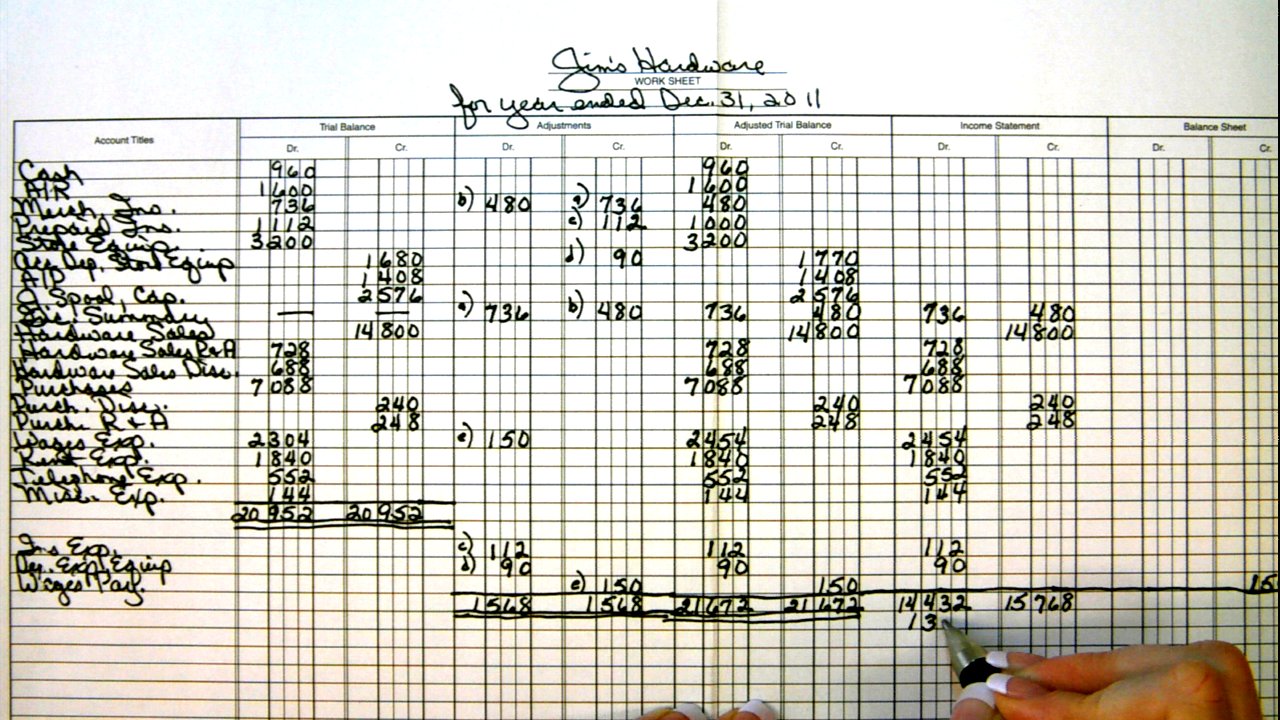 Jim's Hardware
WORK SHEET
for year ended Dec. 31, 2011
Account Titles Trial Balance Adjustments Adjusted Trial Balance Income Statement Balance Sheet
Dr. Cr. Dr. Cr. Dr. Cr. Dr. Cr. Dr. Cr.
Cash 960 960
A/R 1600 1600
Merch. Ins. 736 b) 480 a) 736 480
Prepaid Ins. 1112 c) 112 1000
Store Equip. 3200 3200
Acc. Dep. Store Equip 1680 d) 90 1770
A/P 1408 1408
J. Spool, Cap. 2576 2576
Inc. Summary — — a) 736 b) 480 736 480 736 480
Hardware Sales 14800 14800 14800
Hardware Sales R+A 728 728 728
Hardware Sales Disc. 688 688 688
Purchases 7088 7088 7088
Purch. Disc. 240 240 240
Purch. R + A 248 248 248
Wages Exp. 2304 e) 150 2454 2454
Rent Exp. 1840 1840 1840
Telephone Exp. 552 552 552
Misc. Exp. 144 144 144
20952 20952
Ins Exp. c) 112 112 112
Dep. Exp. Equip d) 90 90 90
Wages Pay. e) 150 150 15
1568 1568 21672 21672 14432 15768
13